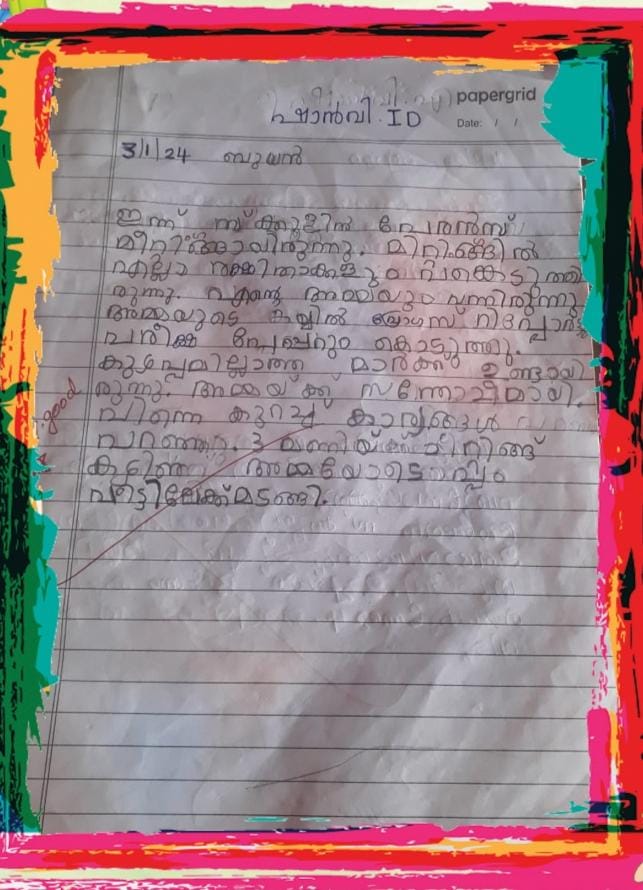 papergrid
ഷാൻവി. ID
Date: / /
3/1/24 ബുധൻ
ഇന്ന് സ്ക്കൂളിൽ പേരൻസ്
മീറ്റിങ്ങായിരുന്നു. മിറ്റിംങ്ങിൽ
എല്ലാ രക്ഷിതാക്കളും പങ്കെടുത്തി
രുന്നു. എന്റെ അമ്മയും വന്നിരുന്നു
അമ്മയുടെ കയ്യിൽ പ്രോഗ്രസ് റിപ്പോർട്ടും
പരീക്ഷ പേപ്പറും കൊടുത്തു.
കുഴപ്പമില്ലാത്ത മാർക്ക് ഉണ്ടായി
രുന്നു. അമ്മയ്ക്ക് സന്തോഷമായി.
good
പിന്നെ കുറച്ച് കാര്യങ്ങൾ
പറഞ്ഞു. 3 മണിയ്ക്ക് മീറ്റിങ്ങ്
കഴിഞ്ഞ് അമ്മയോടൊപ്പം
വീട്ടിലേക്ക് മടങ്ങി.